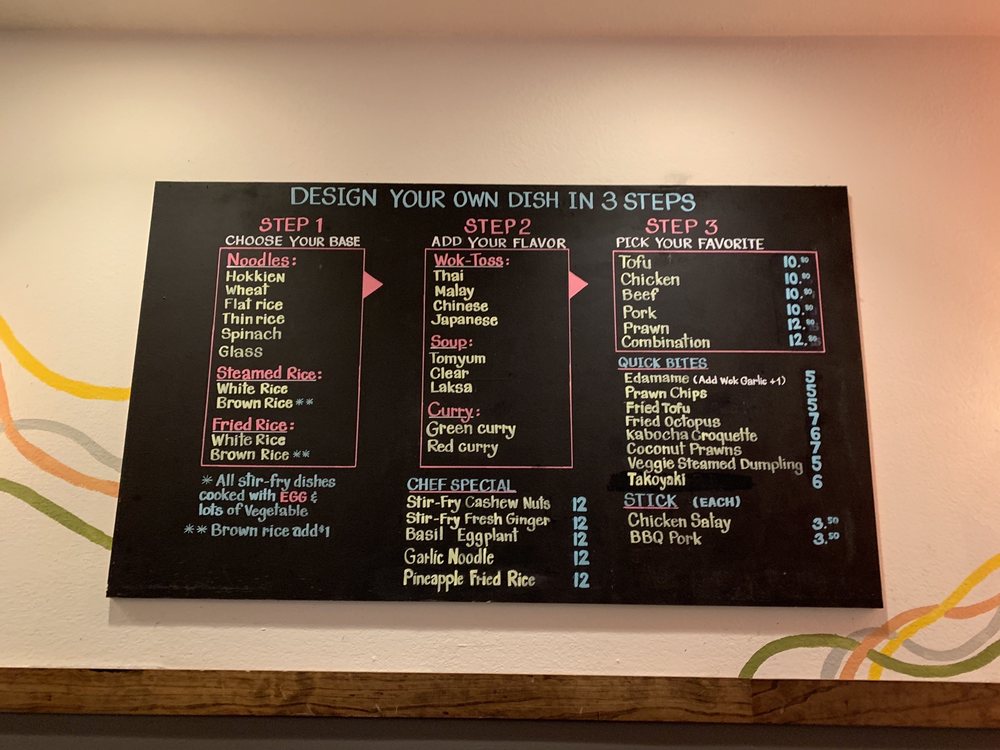 DESIGN YOUR OWN DISH IN 3 STEPS
STEP 1
CHOOSE YOUR BASE
Noodles:
Hokkien
Wheat
Flat rice
Thin rice
Spinach
Glass
Steamed Rice:
White Rice
Brown Rice **
Fried Rice:
White Rice
Brown Rice **
* All stir-fry dishes
cooked with EGG &
lots of Vegetable
** Brown rice add $1
STEP 2
ADD YOUR FLAVOR
Wok-Toss:
Thai
Malay
Chinese
Japanese
Soup:
Tomyum
Clear
Laksa
Curry:
Green curry
Red curry
CHEF SPECIAL
Stir-Fry Cashew Nuts 12
Stir-Fry Fresh Ginger 12
Basil Eggplant 12
Garlic Noodle 12
Pineapple Fried Rice 12
STEP 3
PICK YOUR FAVORITE
Tofu 10.
Chicken 10.
Beef 10.
Pork 10.
Prawn 12.
Combination 12.
QUICK BITES
Edamame (Add Wok Garlic +1) 5
Prawn Chips 5
Fried Tofu 5
Fried Octopus 7
Kabocha Croquette 6
Coconut Prawns 7
Veggie Steamed Dumpling 5
Takoyaki 6
STICK (EACH)
Chicken Satay 3.50
BBQ Pork 3.50